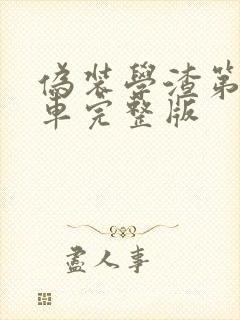 偽裝學渣第
車完整版
盡人事